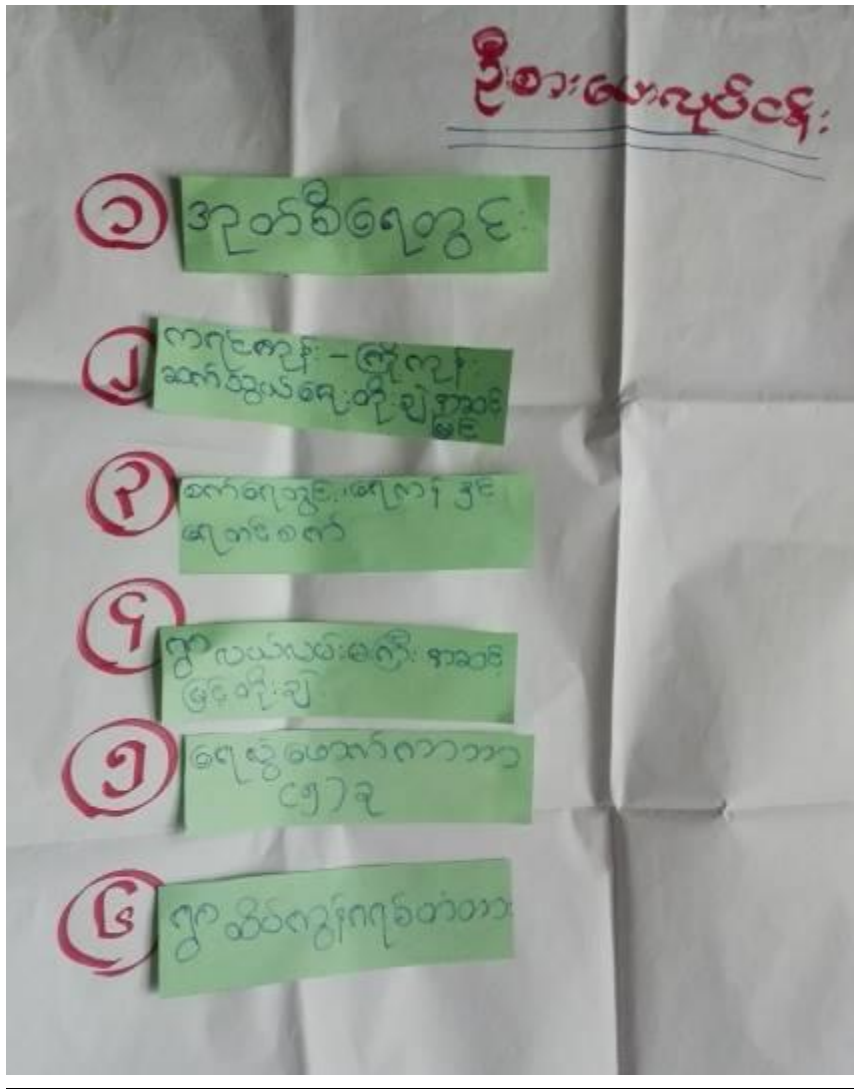 ဦးစားပေးလုပ်ငန်း
၁
အုတ်စီရေတွင်း
၂
ကရင်ကျွန်း – ကြို့ကျွန်း
ဆက်သွယ်ရေးတိုးချဲ့အဆင့်
မြှင့်
၃
စက်ရေတွင်း၊ ရေကန်နှင့်
ရေတင်စက်
၄
ရွာလယ်လမ်းမကြီး အဆင့်
မြှင့်တိုးချဲ့
၅
ရေယိုဖောက်ကာတာ
(၅)ခု
၆
ရွာထိပ်ကွန်ကရစ်တံတား